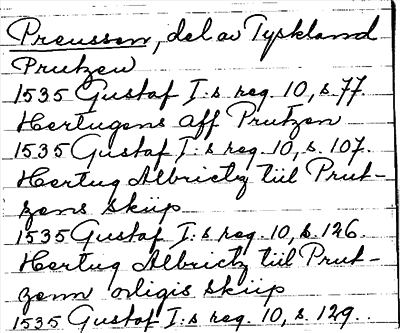 Preussen, del av Tyskland
Prutzen
1535 Gustaf I:s reg. 10, s. 77.
Hertugens aff Prutzen
1535 Gustaf I:s reg. 10, s. 107.
Hertug Albrictz tiil Prut-
zens skiip
1535 Gustaf I:s reg. 10, s. 126.
Hertug Albrictz tiil Prut-
zenn orligis skiip
1535 Gustaf I:s reg. 10, s. 129.